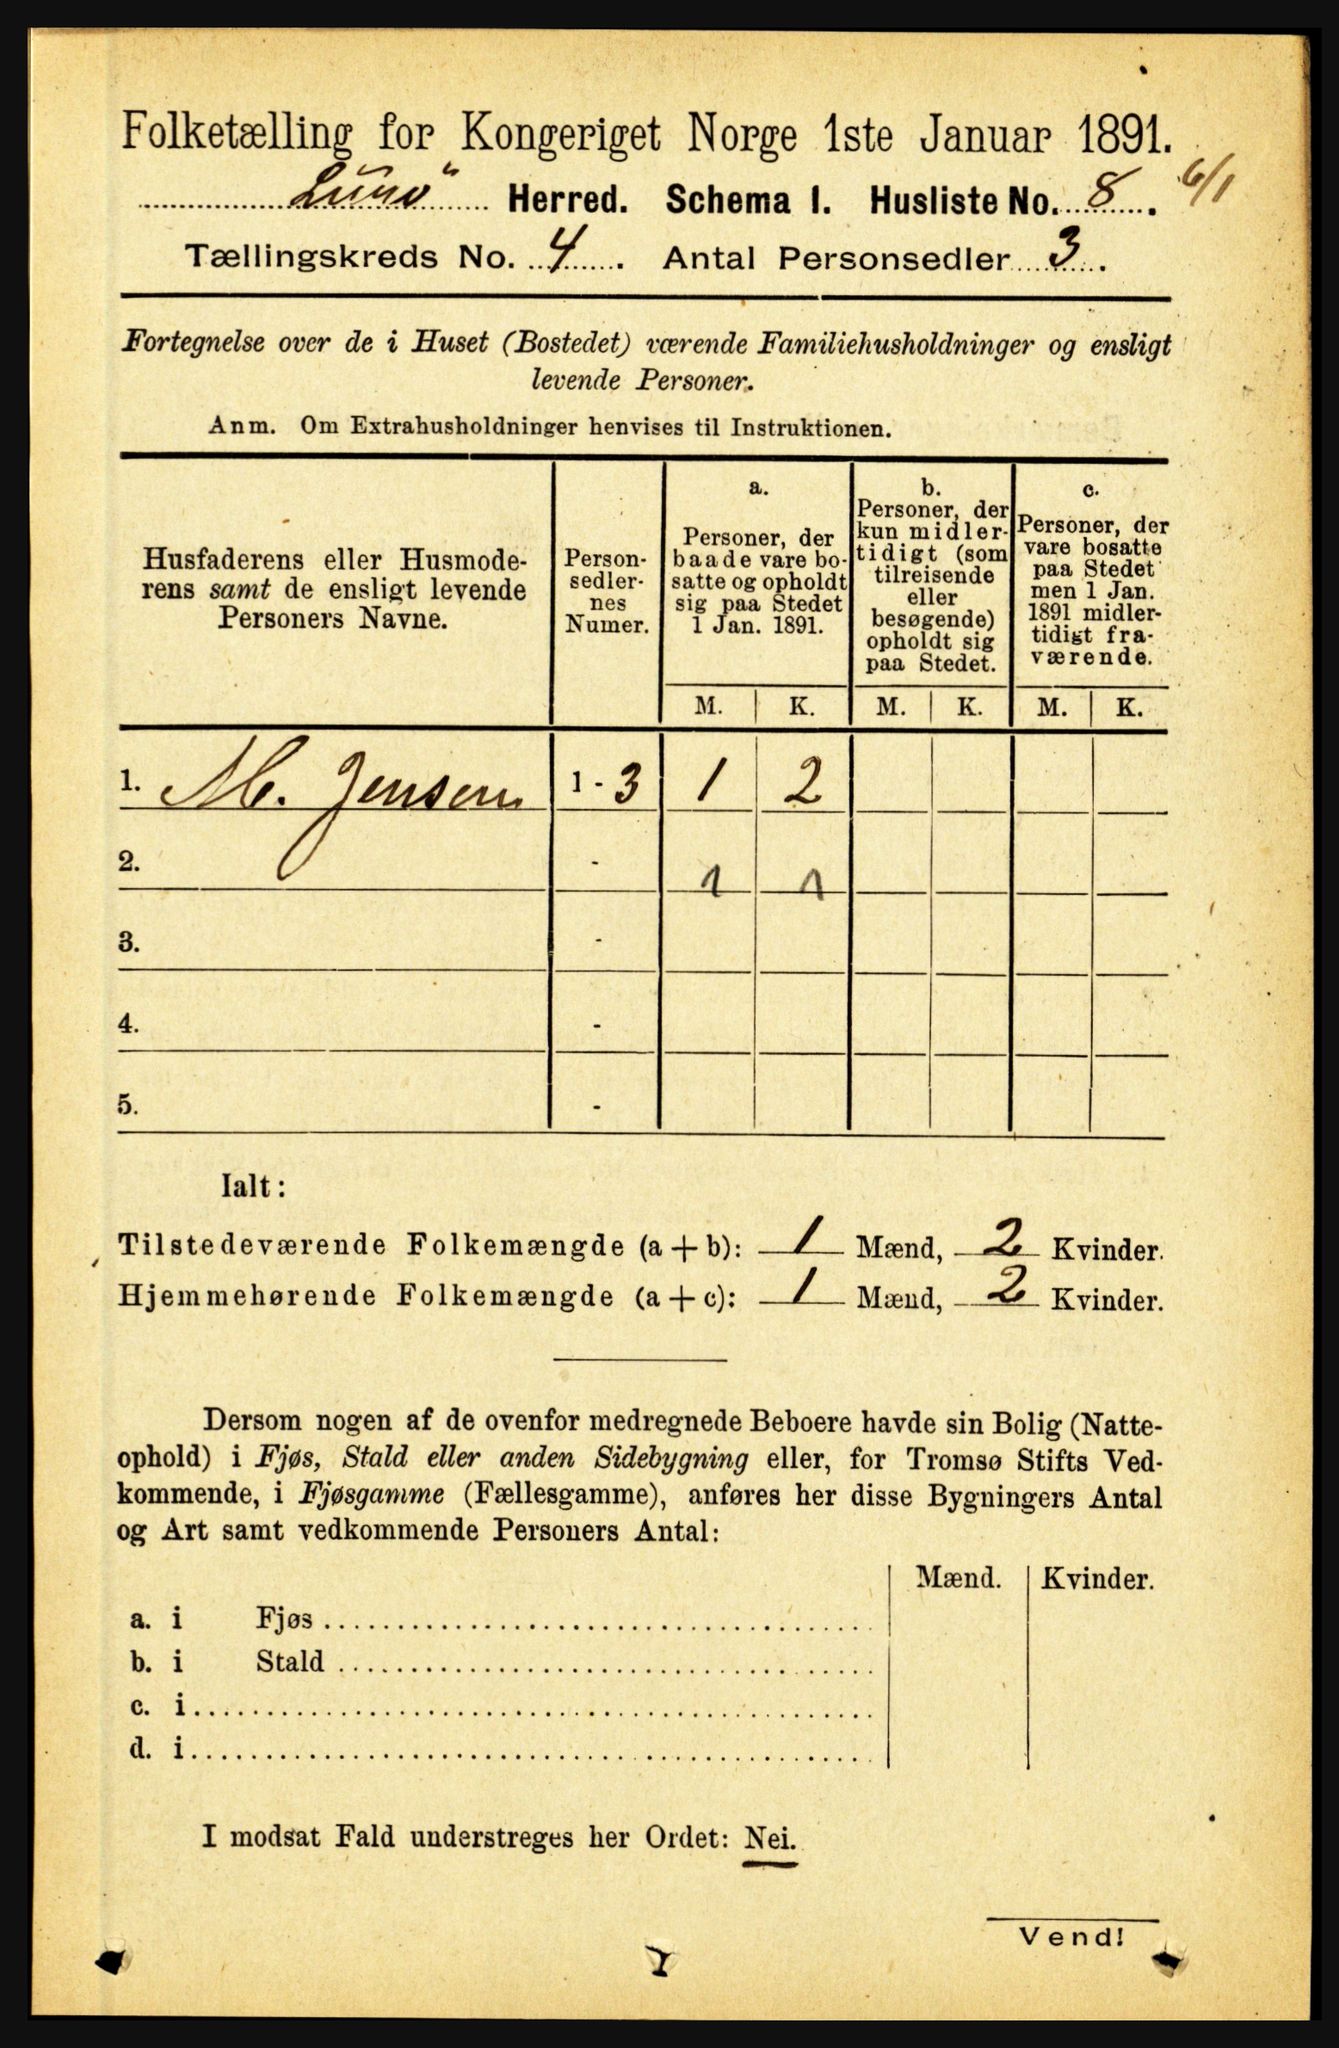 Folketælling for Kongeriget Norge 1ste Januar 1891.
Lurø Herred. Schema I. Husliste No. 8. 6/1
Tællingskreds No. 4. Antal Personsedler 3.
Fortegnelse over de i Huset (Bostedet) værende Familiehusholdninger og ensligt
levende Personer.
Anm. Om Extrahusholdninger henvises til Instruktionen.
Husfaderens eller Husmode-
rens samt de ensligt levende
Personers Navne.
Person-
sedler-
nes
Numer.
a.
Personer, der
baade vare bo-
satte og opholdt
sig paa Stedet
1 Jan. 1891.
b.
Personer, der
kun midler-
tidigt (som
tilreisende
eller
besøgende)
opholdt sig
paa Stedet.
c.
Personer, der
vare bosatte
paa Stedet
men 1 Jan.
1891 midler-
tidigt fra-
værende.
M. K. M. K. M. K.
1. M. Jensen 1 - 3 1 2
2. - 1 1
3. -
4. -
5. -
Ialt:
Tilstedeværende Folkemængde (a + b): 1 Mænd, 2 Kvinder.
Hjemmehørende Folkemængde (a + c): 1 Mænd, 2 Kvinder.
Dersom nogen af de ovenfor medregnede Beboere havde sin Bolig (Natte-
ophold) i Fjøs, Stald eller anden Sidebygning eller, for Tromsø Stifts Ved-
kommende, i Fjøsgamme (Fællesgamme), anføres her disse Bygningers Antal
og Art samt vedkommende Personers Antal:
Mænd. Kvinder.
a. i Fjøs
b. i Stald
c. i
d. i
I modsat Fald understreges her Ordet: Nei.
Vend!